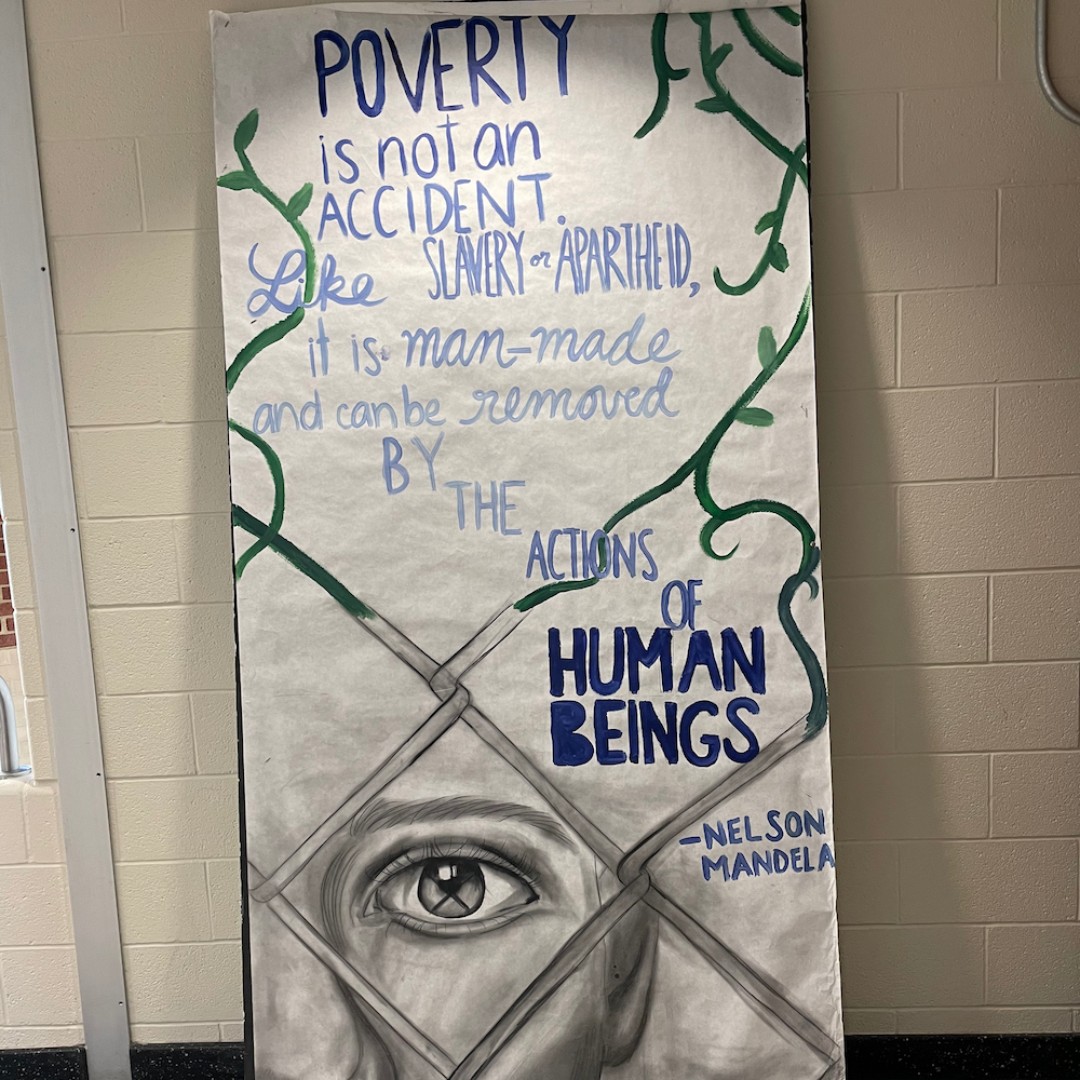 POVERTY
is not an
ACCIDENT.
Like SLAVERY or APARTHEID,
it is man-made
and can be removed
BY
THE
ACTIONS
OF
HUMAN
BEINGS
-NELSON
MANDELA